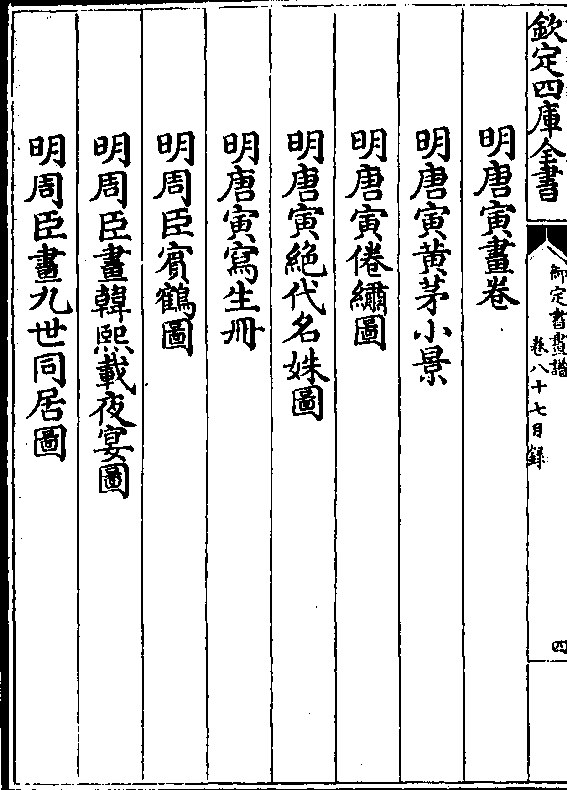 欽定四庫全書
御定書畫譜
卷八十七目録
四
明唐寅畫卷
明唐寅黄茅小景
明唐寅倦繡圖
明唐寅絶代名姝圖
明唐寅寫生冊
明周臣賔鶴圖
明周臣畫韓熙載夜宴圖
明周臣畫九世同居圖